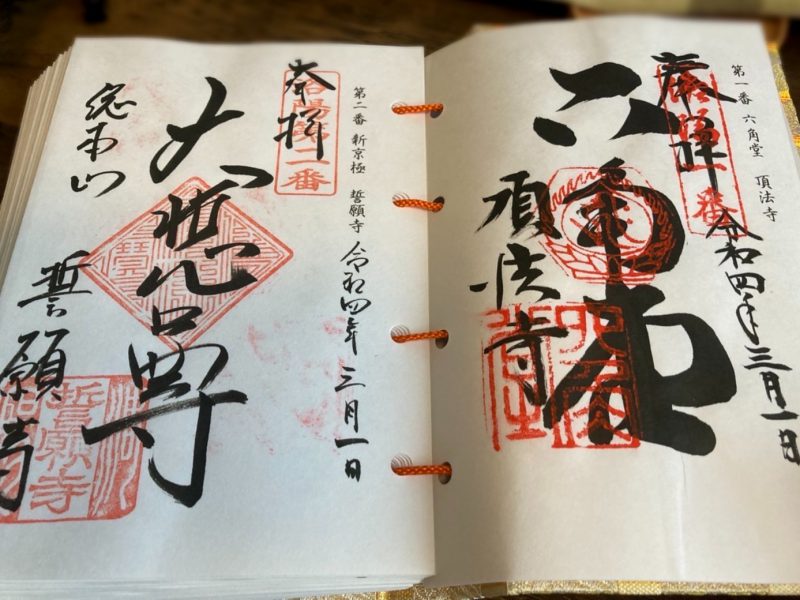 第一番 六角堂 頂法寺
奉拝
令和四年三月一日
六角堂
頂法寺
第二番 新京極 誓願寺
奉拝
洛陽第二番
令和四年三月一日
大悲尊
総本山
誓願寺
誓願寺